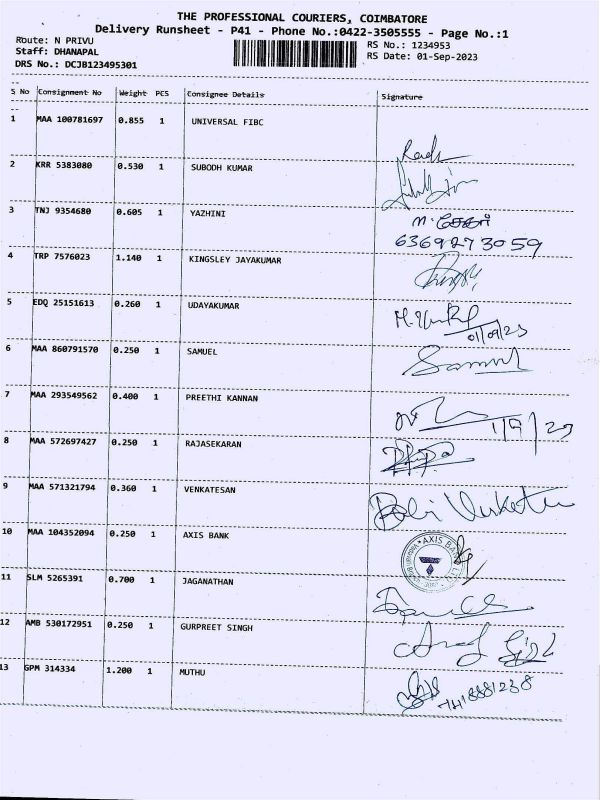 THE PROFESSIONAL COURIERS, COIMBATORE
Delivery Runsheet - P41 - Phone No.:0422-3505555 - Page No.:1
Route: N PRIVU
Staff: DHANAPAL
DRS No.: DCJB123495301
RS No.: 1234953
RS Date: 01-Sep-2023
S No Consignment No Weight PCS Consignee Details Signature
1 MAA 100781697 0.855 1 UNIVERSAL FIBC
2 KRR 5383080 0.530 1 SUBODH KUMAR
3 TNJ 9354680 0.605 1 YAZHINI
6369273059
4 TRP 7576023 1.140 1 KINGSLEY JAYAKUMAR
5 EDQ 25151613 0.260 1 UDAYAKUMAR
01/09/23
6 MAA 860791570 0.250 1 SAMUEL Samuel
7 MAA 293549562 0.400 1 PREETHI KANNAN
1/9/23
8 MAA 572697427 0.250 1 RAJASEKARAN
9 MAA 571321794 0.360 1 VENKATESAN
10 MAA 104352094 0.250 1 AXIS BANK AXIS BANK
11 SLM 5265391 0.700 1 JAGANATHAN
12 AMB 530172951 0.250 1 GURPREET SINGH
13 GPM 314334 1.200 1 MUTHU